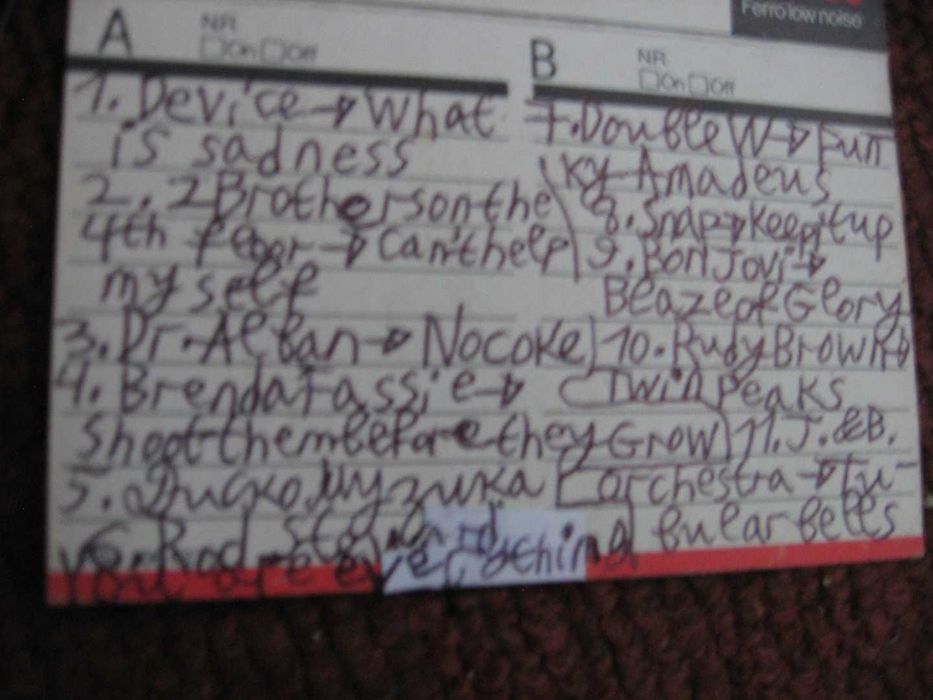 Ferro low noise
A
NR
On Off
1. Device → What
is sadness
2. 2 Brothersonthe
4th floor → Can'thelp
my self
3. Dr. Alban → Nocoke
4. BrendaFassie →
Shootthembeforetheygrow
5. Диско музика
6. Rod Steward
you are everething
B
NR
On Off
7. DoubleW → Fun
ky Amadeus
8. Snap → keepitup
9. Bon Jovi →
BlazeofGlory
10. RudyBrown →
Twin Peaks
11. J. & B.
orchestra → Tu-
bularbells